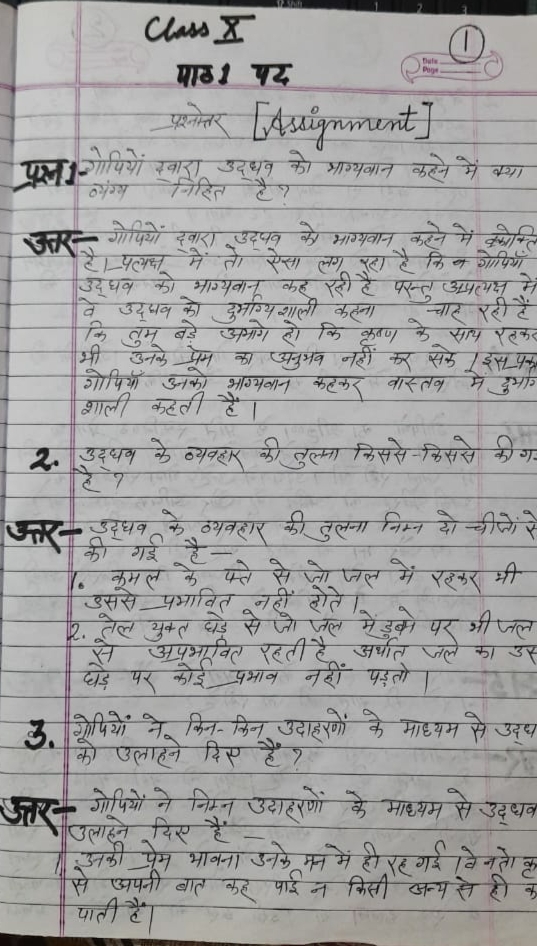 Class X
1
Date
Page
पाठ 1 पद
प्रश्नोत्तर [Assignment]
प्रश्न 1- गोपियों द्वारा उद्धव को भाग्यवान कहने में क्या
व्यंग्य निहित है?
उत्तर— गोपियों द्वारा उद्धव को भाग्यवान कहने में वक्रोक्ति
है। प्रत्यक्ष में तो ऐसा लग रहा है कि व गोपियाँ
उद्धव को भाग्यवान कह रही है परन्तु अप्रत्यक्ष में
वे उद्धव को दुर्भाग्यशाली कहना चाह रही हैं
कि तुम बड़े अभागे हो कि कृष्ण के साथ रहकर
भी उनके प्रेम का अनुभव नहीं कर सके। इस
गोपियाँ उनको भाग्यवान कहकर वास्तव में दुर्भाग
शाली कहती हैं।
2. उद्धव के व्यवहार की तुलना किससे-किससे की ग
है?
उत्तर— उद्धव के व्यवहार की तुलना निम्न दो चीजों से
की गई है—
1. कमल के पत्ते से जो जल में रहकर भी
उससे प्रभावित नहीं होते।
2. तेल युक्त घड़े से जो जल में डुबने पर भी जल
से अप्रभावित रहती है अर्थात जल का उस
घड़े पर कोई प्रभाव नहीं पड़ता।
3. गोपियों ने किन-किन उदाहरणों के माध्यम से उद्ध
को उलाहने दिए हैं?
उत्तर— गोपियों ने निम्न उदाहरणों के माध्यम से उद्धव
उलाहने दिए हैं—
1. उनकी प्रेम भावना उनके मन में ही रह गई। वे न तो कृ
से अपनी बात कह पाई न किसी अन्य से ही क
पाती हैं।